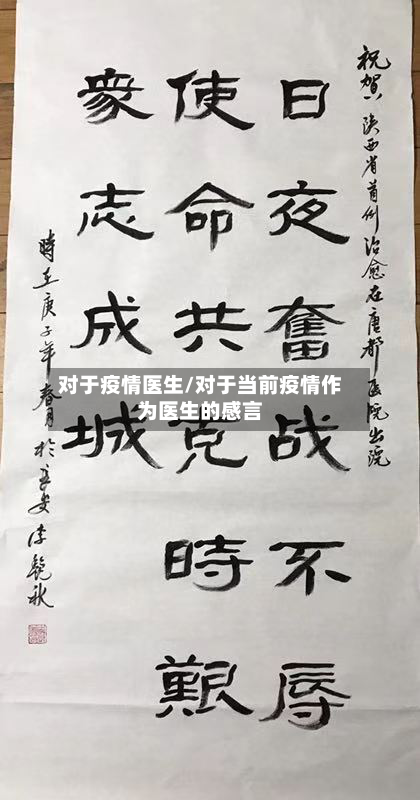 祝贺陕西省首例治愈在唐都医院出院
日夜奮战不辱
使命共克時艱
衆志成城
時在庚子年春月於長安李龍秋
对于疫情医生/对于当前疫情作
为医生的感言